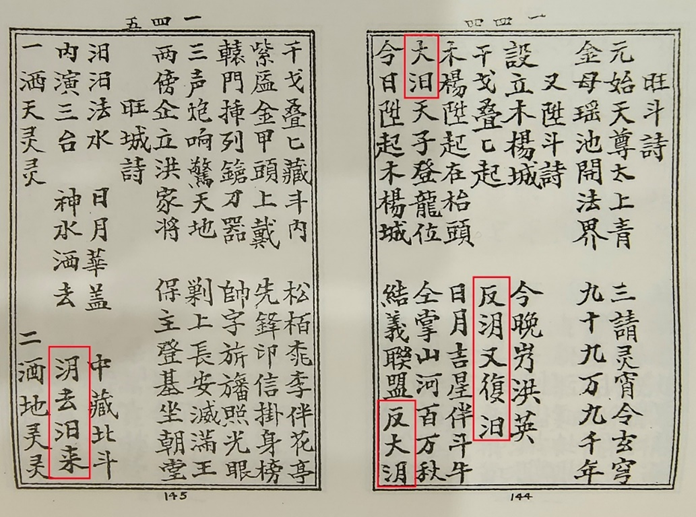 一四四
旺斗詩
元始天尊太上青 三請灵宵令玄穹
金母瑶池開法界 九十九万九千年
又陞斗詩
設立木楊城 今晚岁洪英
干戈叠匕起 反又復汨
木楊陞起在枱頭 日月吉星伴斗牛
大汨天子登龍位 仝掌山河百万秋
今日陞起木楊城 結義聯盟反大
144
一四五
干戈叠匕藏斗内 松栢李伴花亭
紫盔金甲頭上戴 先鋒印信掛身榜
轅門挿列鎗刀器 帥字旂旛照光眼
三声炮响驚天地 剿上長安滅滿王
両傍企立洪家将 保主登基坐朝堂
旺城詩
汨汨法水 日月華盖 中藏北斗
内演三台 神水洒去 去汨来
一洒天灵灵 二洒地灵灵
145